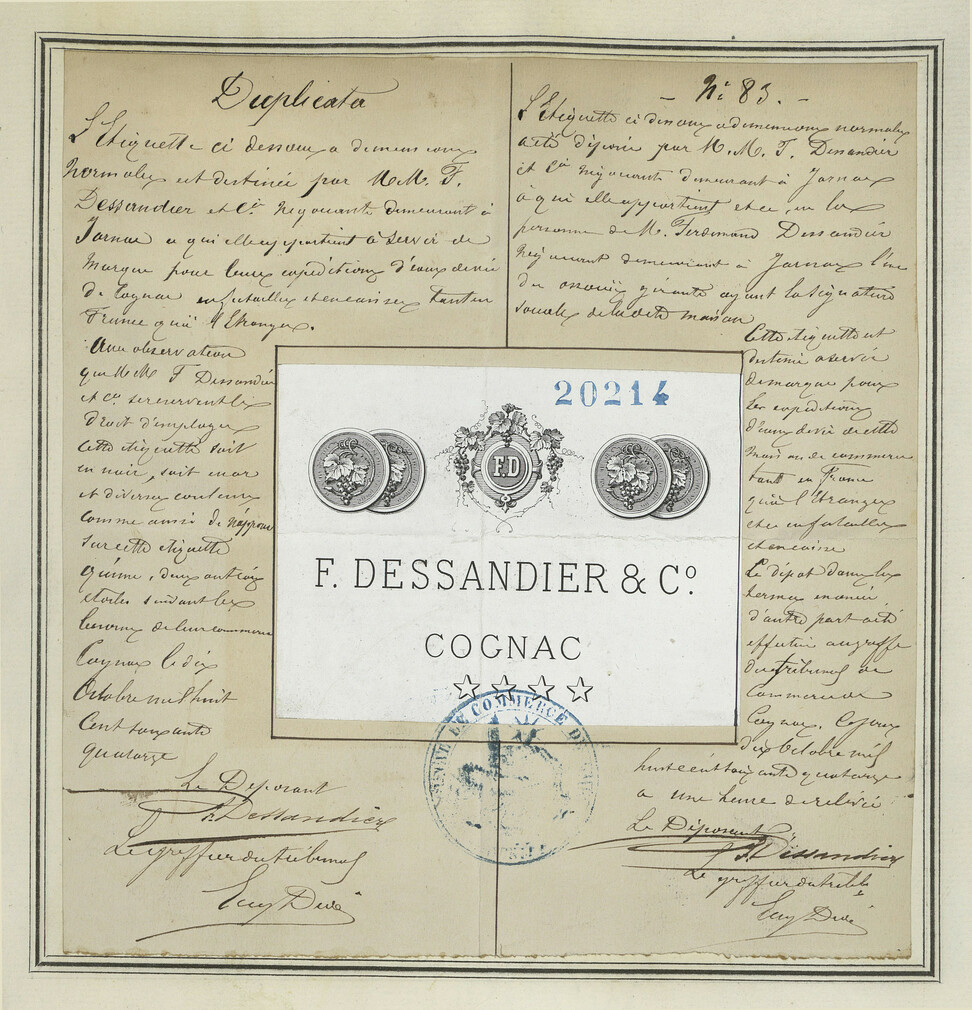 Duplicata
L'Etiquette ci dessous a dimensions
Normales est destinée par M.M. F.
Dessandier et Cie Négociants demeurant à
Jarnac a qui elle appartient à servir de
Marque pour leurs expéditions d'eaux de vie
de Cognac en futailles et en caisses tant en
France qu'à l'Etranger.
Avec observation
que M.M. F Dessandier
et Co se reservent le
droit d'employer
cette étiquette soit
en noir, soit en or
et diverses couleurs
comme aussi de
sur cette étiquette
étoiles suivant les
besoins de leur commerce
Cognac le dix
Octobre mil huit
Cent soixante
quatorze
Le Déposant
F. Dessandier
Le greffier du tribunal
- No 83. -
L'Etiquette ci dessous a dimensions normales
a été déposée par M.M. F. Dessandier
et Cie Négociants demeurant à Jarnac
à qui elle appartient et ce, en la
personne de M. Ferdinand Dessandier
Négociant demeurant à Jarnac l'un
des associés gérants ayant la signature
sociale de la dite maison
Cette étiquette est
destinée a servir
de marque pour
les expéditions
d'eaux de vie de cette
Maison de commerce
tant en France
qu'à l'étranger
et ce en futailles
et en caisse
Le dépot dans les
formes
d'autre part a été
effectué au greffe
du tribunal de
Commerce de
Cognac. Ce jour
dix Octobre mil
huit cent soixante quatorze
a une heure de relevée
Le Déposant
F. Dessandier
Le greffier du tribl
20214
F.D
F. DESSANDIER & Co.
COGNAC
COMMERCE